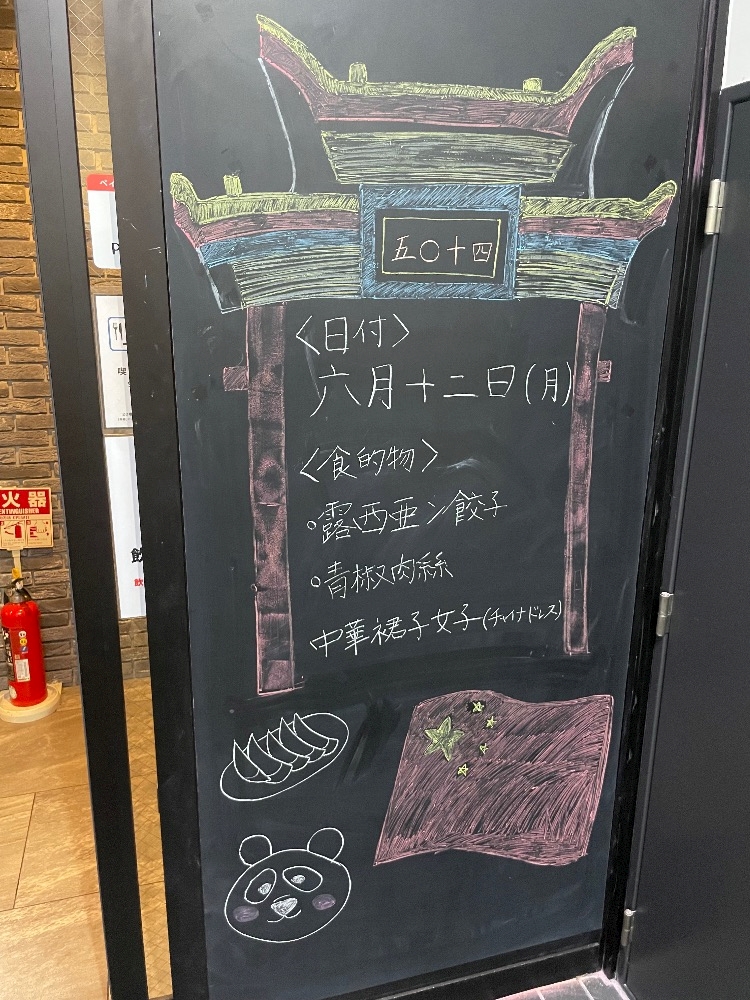 五〇十四
〈日付〉
六月十二日(月)
〈食的物〉
。露西亜ン餃子
。青椒肉絲
中華裙子女子(チャイナドレス)
火器